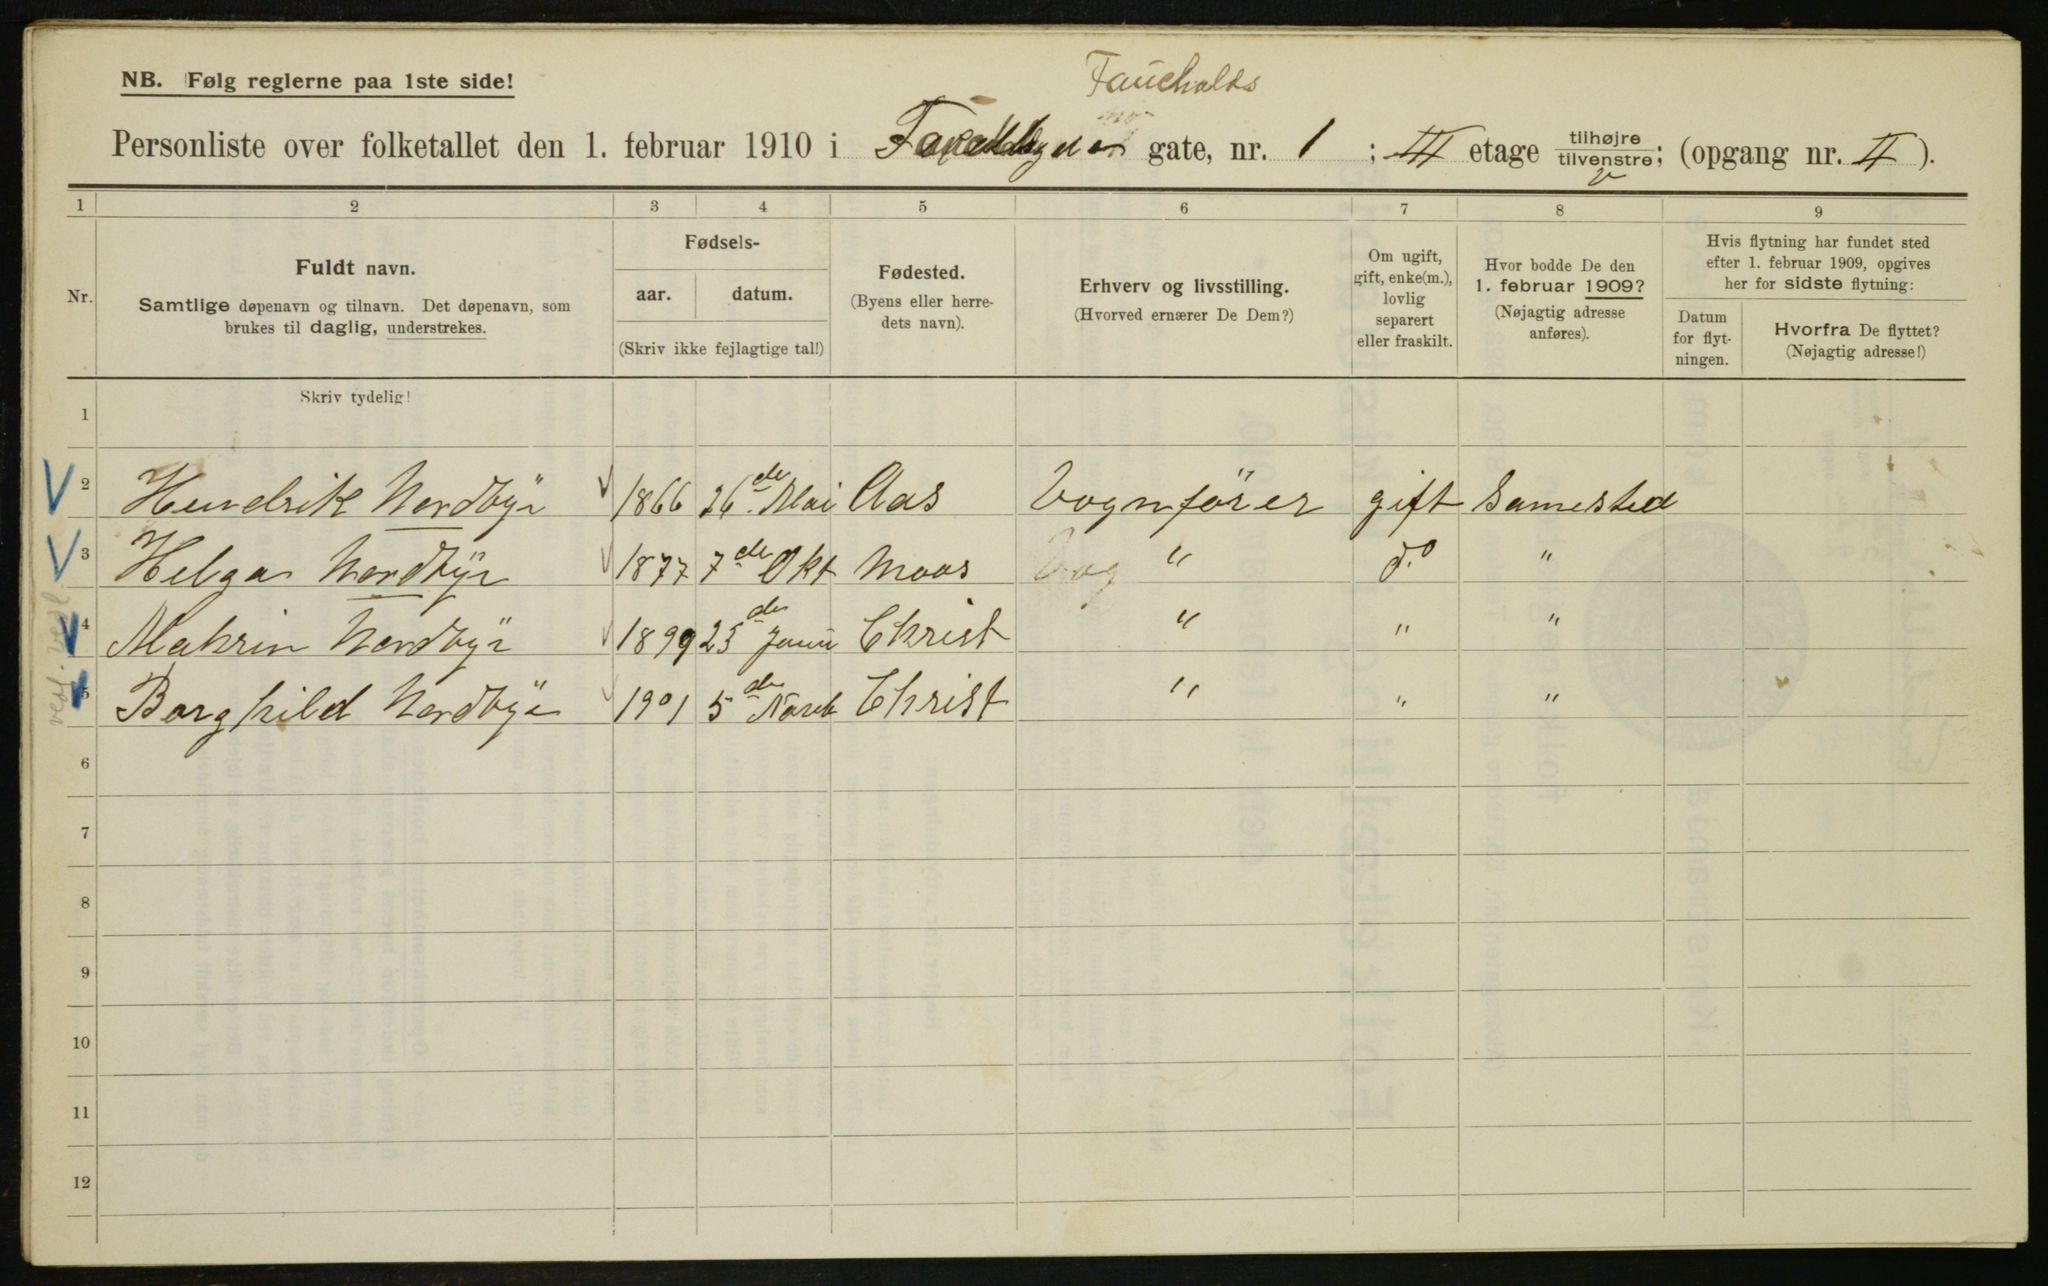 Fauchalds
NB. Følg reglerne paa 1ste side!
Personliste over folketallet den 1. februar 1910 i gate, nr. 1 ; III etage tilhøjre tilvenstre; (opgang nr. II ).
1 2 3 4 5 6 7 8 9
Nr.
Fuldt navn.
Samtlige døpenavn og tilnavn. Det døpenavn, som
brukes til daglig, understrekes.
Fødsels-
aar. datum.
(Skriv ikke fejlagtige tal!)
Fødested.
(Byens eller herre-
dets navn).
Erhverv og livsstilling.
(Hvorved ernærer De Dem?)
Om ugift,
gift, enke(m.),
lovlig
separert
eller fraskilt.
Hvor bodde De den
1. februar 1909?
(Nøjagtig adresse
anføres).
Hvis flytning har fundet sted
efter 1. februar 1909, opgives
her for sidste flytning:
Datum
for flyt-
ningen.
Hvorfra De flyttet?
(Nøjagtig adresse!)
Skriv tydelig!
1
2 Hendrik Nordbÿe 1866 26de Mai Aas Vognförer gift Samested
3 Helga Nordbÿe 1877 7de Okt Moss " do "
4 Makrin Nordbÿe 1899 25de Janu Christ " " "
5 Borghild Nordbÿe 1901 5de Novb Christ " " "
6
7
8
9
10
11
12